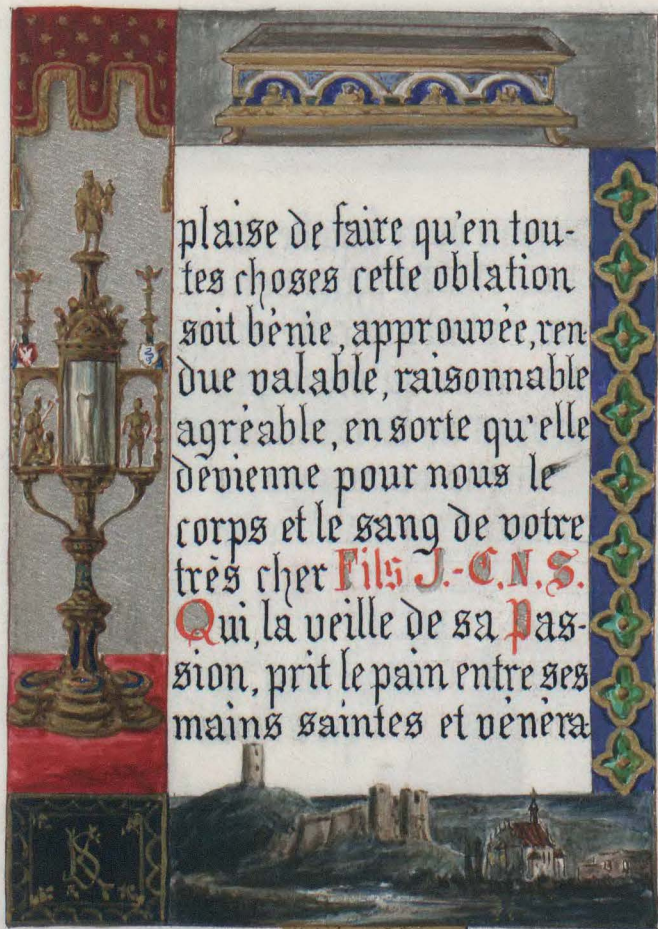 plaise de faire qu'en tou-
tes choses cette oblation
soit bénie, approuvée, ren-
due valable, raisonnable
agréable, en sorte qu'elle
devienne pour nous le
corps et le sang de votre
très cher Fils J.-C. N. S.
Qui, la veille de sa Pas-
sion, prit le pain entre ses
mains saintes et vénéra-